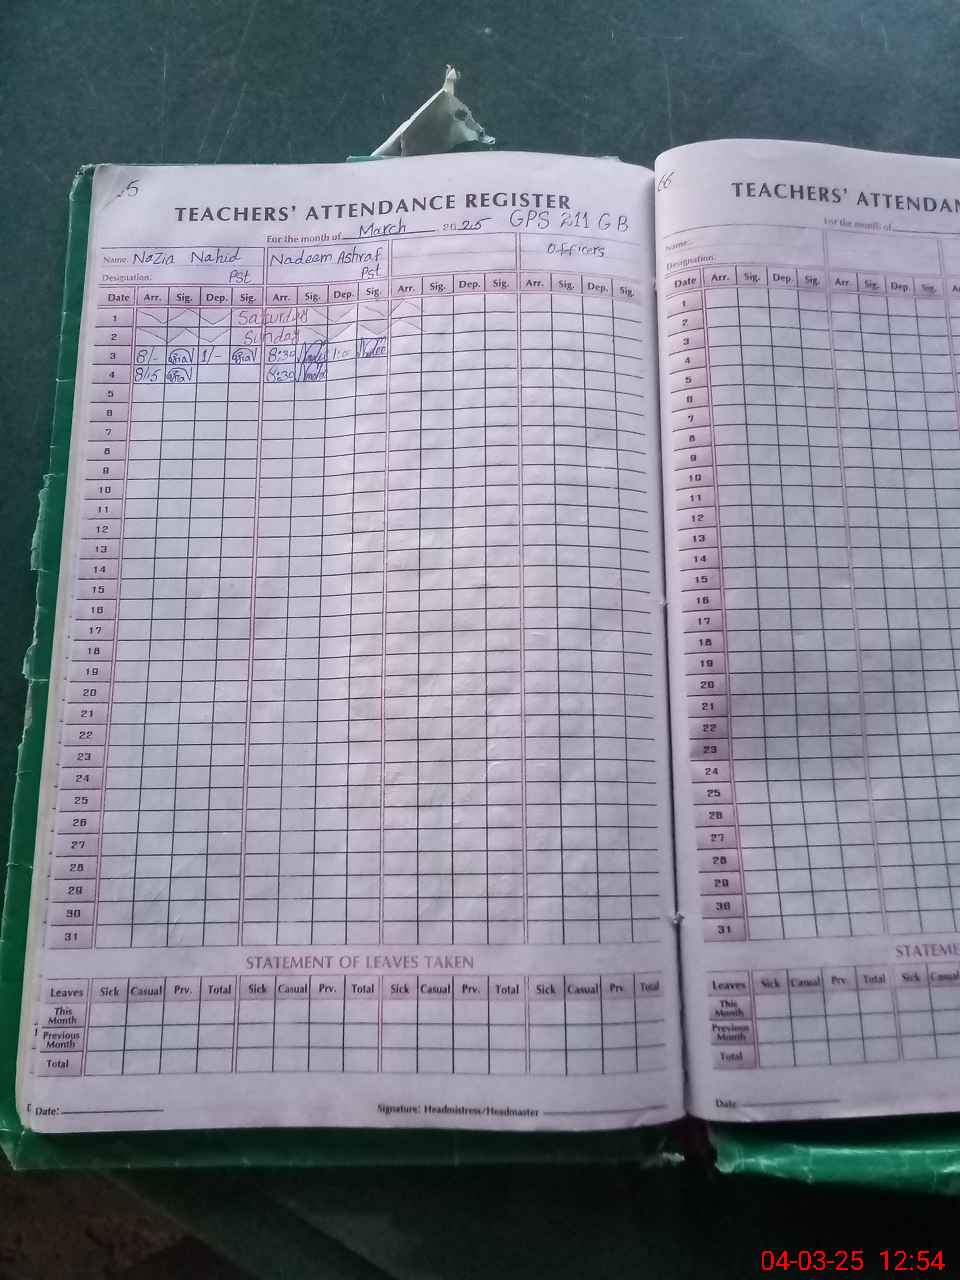 TEACHERS' ATTENDANCE REGISTER
For the month of March 2025 GPS 211 GB
Name: Nazia Nahid Nadeem Ashraf Officers
Designation: Pst Pst
Date Arr. Sig. Dep. Sig. Arr. Sig. Dep. Sig. Arr. Sig. Dep. Sig. Arr. Sig. Dep. Sig.
1 Saturday
2 Sunday
3 8/- 1/- 8:30
4 8:15 8:30
5
6
7
8
9
10
11
12
13
14
15
16
17
18
19
20
21
22
23
24
25
26
27
28
29
30
31
STATEMENT OF LEAVES TAKEN
Leaves Sick Casual Prv. Total Sick Casual Prv. Total Sick Casual Prv. Total Sick Casual Prv. Total
This Month
Previous Month
Total
Date: Signature: Headmistress/Headmaster
66
TEACHERS' ATTENDAN
For the month of
Name:
Designation:
Date Arr. Sig. Dep Sig. Arr. Sig. Dep. Sig.
1
2
3
4
5
6
7
8
9
10
11
12
13
14
15
16
17
18
19
20
21
22
23
24
25
26
27
28
29
30
31
STATEME
Leaves Sick Casual Prv. Total Sick Casual
This Month
Previous Month
Total
Date
04-03-25 12:54